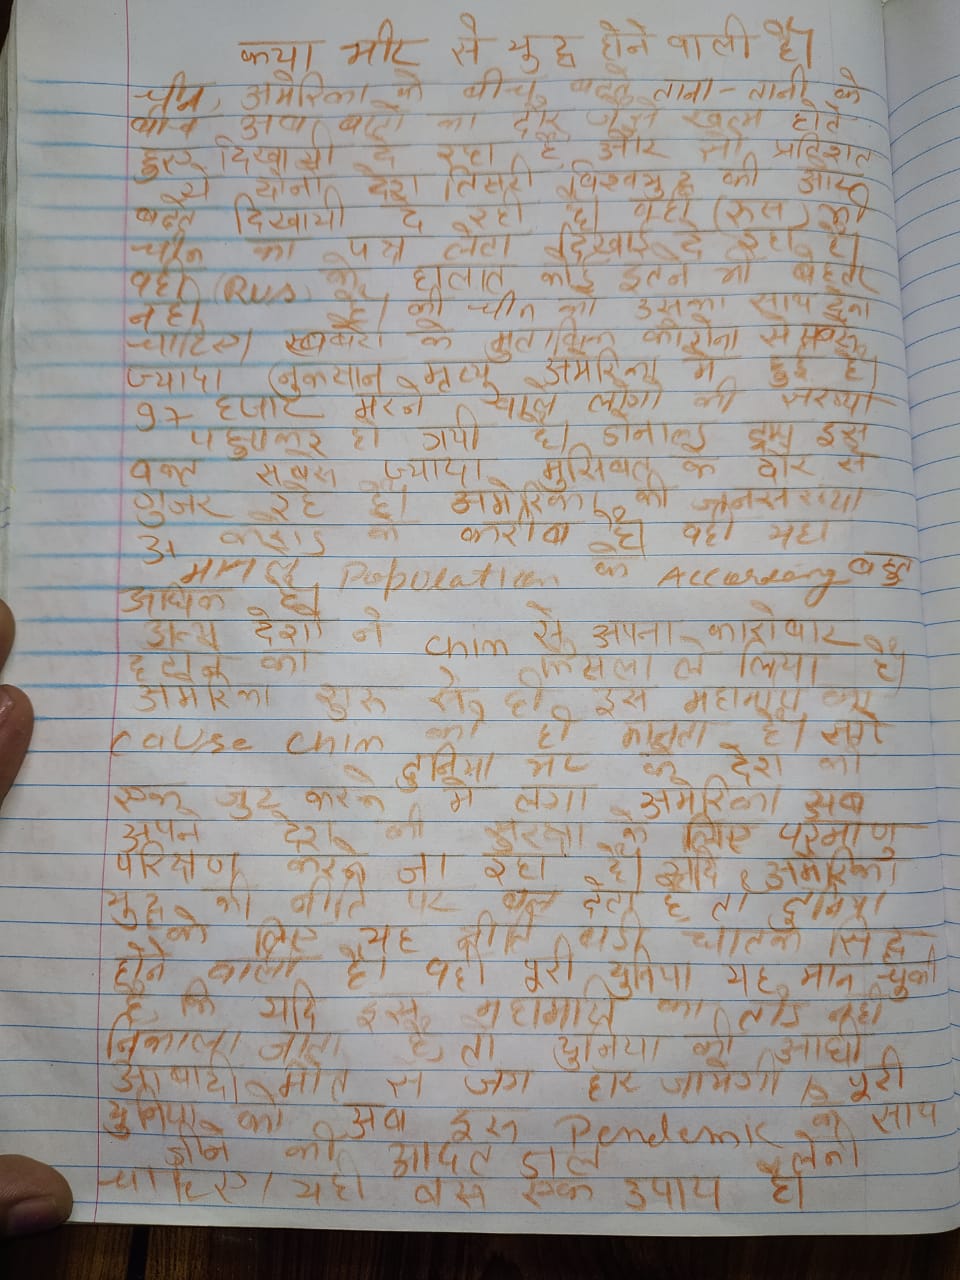 क्या मौत से युद्ध होने वाली है।
चीन, अमेरिका के बीच बढ़ते ताना-तानी के
बीच अब बातों का दौर जैसे खत्म होते
हुए दिखायी दे रहा है और सौ प्रतिशत
से दोनों देश तिसरी विश्वयुद्ध की ओर
बढ़ते दिखायी दे रही है। वही (रूस) भी
चीन का पक्ष लेता दिखाई दे रहा है।
वही (RUS) के हालात कोई इतने भी बेहतर
नही है। की चीन को उसका साथ देना
चाहिए। खबरों के मुताबिक कोरोना से सबसे
ज्यादा नुकसान मृत्यु अमेरिका में हुई है।
97 हजार मरने वाले लोगो की संख्या
पहुचकर हो गयी है। डोनाल्ड ट्रम्प इस
वक्त सबसे ज्यादा मुसिबत के दौर से
गुजर रहे है। अमेरिका की जनसंख्या
करोड़ के करीब है। वही यहा
Population के According बहुत
अधिक है।
अन्य देशों ने Chin से अपना कारोबार
हटाने का फैसला ले लिया है।
अमेरिका शुरू से ही इस महामारी का
cause chin को ही मानता है। सभी
दुनिया भर के देश को
एक जुट करने में लगा अमेरिका अब
अपने देश की सुरक्षा के लिए परमाणु
परिक्षण करने जा रहा है। यदि अमेरिका
युद्ध की नीति पर बल देता है तो दुनिया
के लिए यह नीति बड़ी घातक सिद्ध
होने वाली है। वही पूरी दुनिया यह मान चुकी
है कि यदि इस महामारी का तोड़ नही
निकाला जाता है, तो दुनिया की आधी
आबादी मौत से जंग हार जायेगी। पूरी
दुनिया को अब इस Pendemic के साथ
जीने की आदत डाल लेनी
चाहिए। यही बस एक उपाय है।